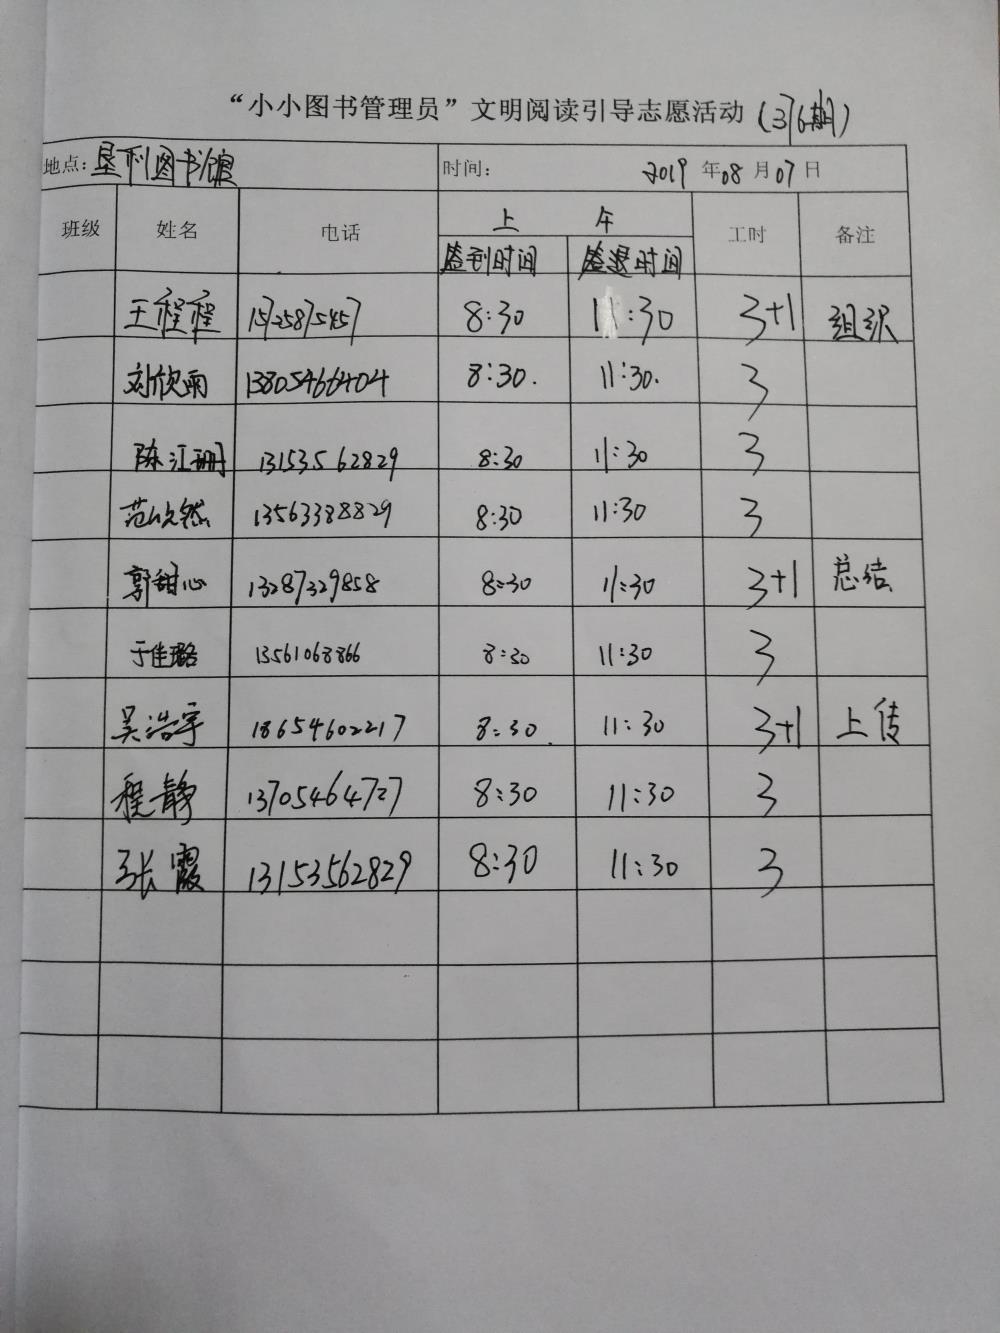 “小小图书管理员”文明阅读引导志愿活动（376期）
地点：垦利图书馆 时间： 2019年08月07日
班级 姓名 电话 上 午 工时 备注
签到时间 签退时间
王程程 8:30 11:30 3+1 组织
刘欣雨 13805466404 8:30. 11:30. 3
陈江珊 13153562829 8:30 11:30 3
13563388829 8:30 11:30 3
郭甜心 13287329858 8:30 11:30 3+1 总结
于佳璐 13561068866 8:30 11:30 3
吴浩宇 18654602217 8:30 11:30 3+1 上传
程静 13705464727 8:30 11:30 3
张霞 13153562829 8:30 11:30 3